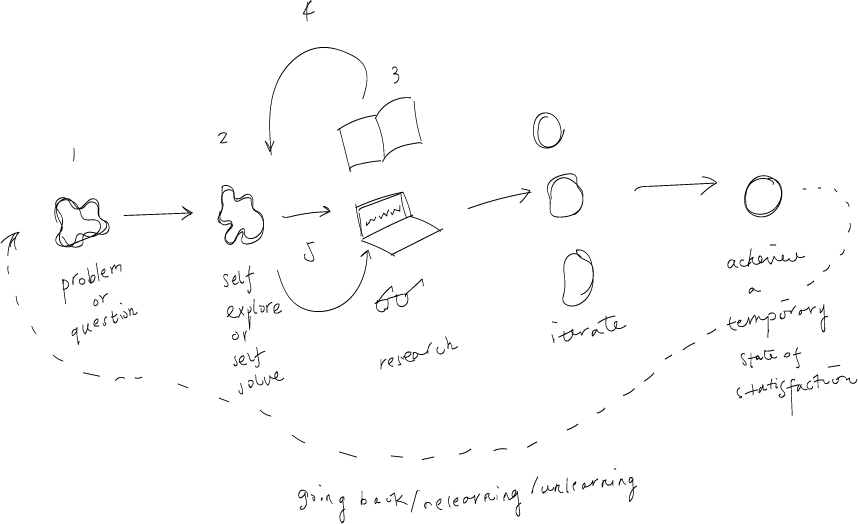 4
3
2
1
www
5
problem
or
question
self
explore
or
self
solve
research
iterate
acheive
a
temporary
state of
statisfaction
going back/relearning/unlearning